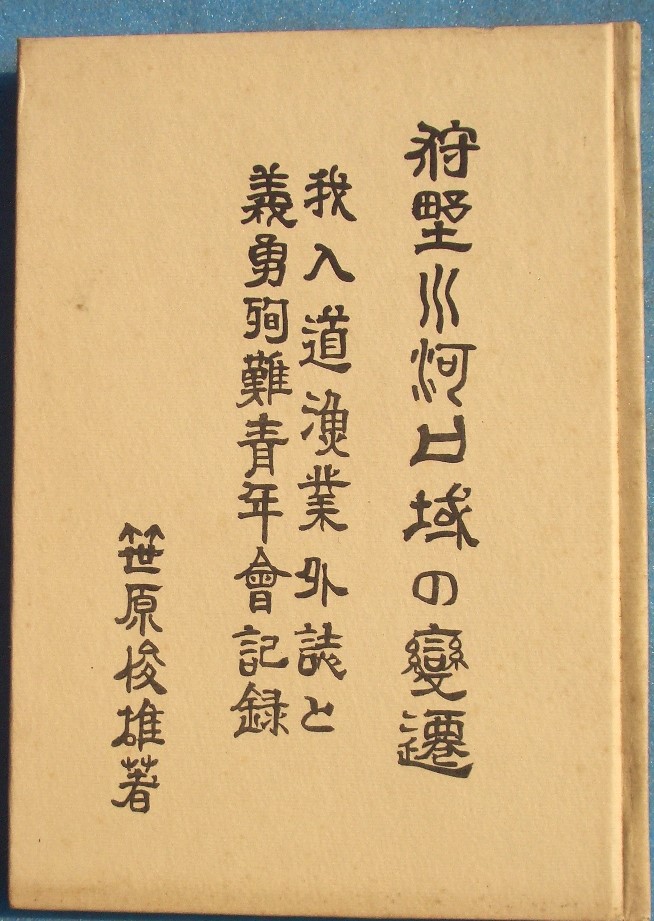 狩野川河口域の變遷
我入道漁業外誌と
義勇殉難青年會記録
笹原俊雄著